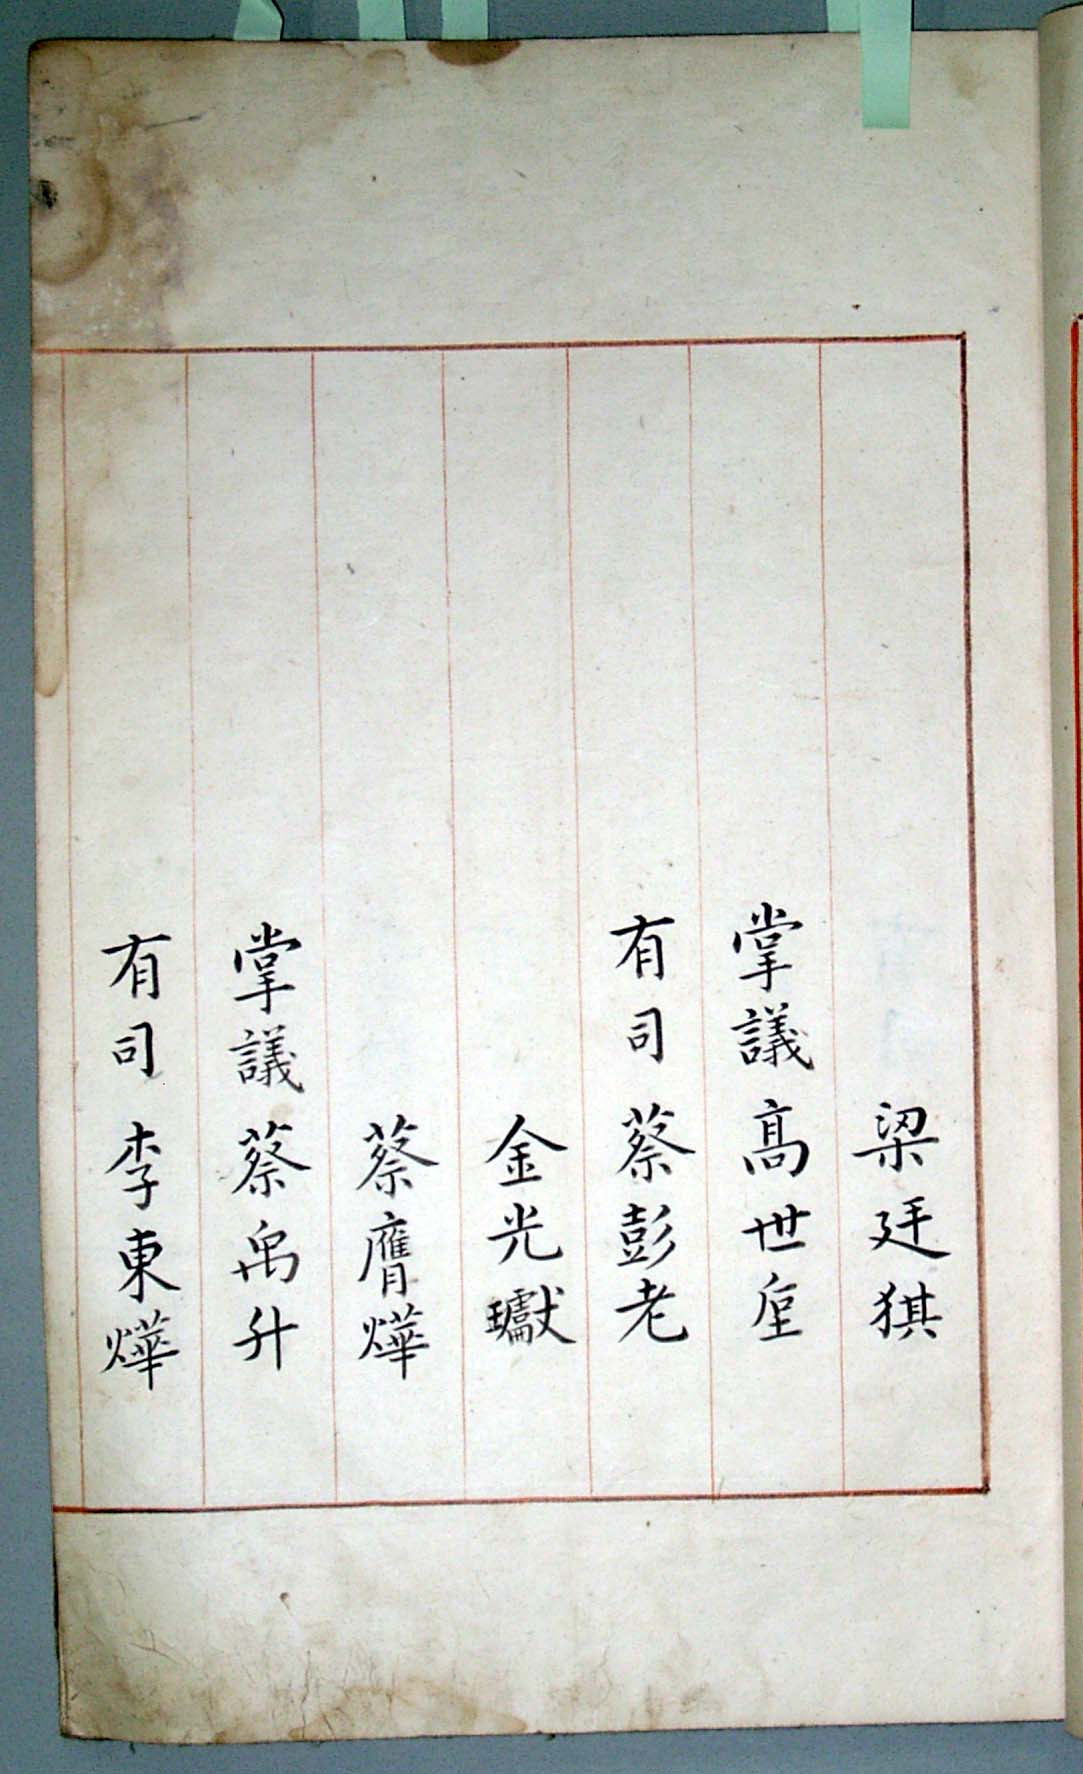 梁廷猉
掌議 髙世
有司 蔡彭老
金光瓛
蔡膺燁
掌議 蔡禹升
有司 李東燁